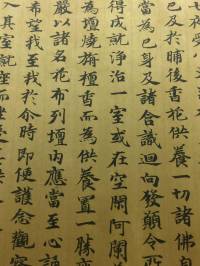 七夜受
已及於晡後香花供養一切諸佛自
當為己身及諸含識迴向發願令所
得成就淨治一室或在空閑阿蘭
為壇燒栴檀香而為供養置一勝
嚴以諸名花布列壇內應當至心誦
希望我至我於尒時即便護念觀察
入其室就座而坐